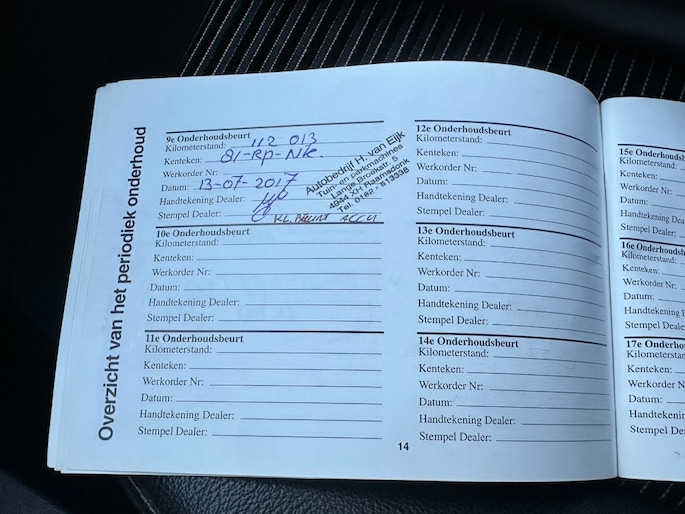 Overzicht van het periodiek onderhoud
9e Onderhoudsbeurt
Kilometerstand: 112 013
Kenteken: 81-RP-NK.
Werkorder Nr:
Datum: 13-07-2017
Handtekening Dealer:
Stempel Dealer: KL. BEURT ACCU
Autobedrijf H. van Eijk
Tuin- en parkmachines
Lange Broekstr. 5
4944 XH Raamsdonk
Tel. 0162 - 513338
10e Onderhoudsbeurt
Kilometerstand:
Kenteken:
Werkorder Nr:
Datum:
Handtekening Dealer:
Stempel Dealer:
11e Onderhoudsbeurt
Kilometerstand:
Kenteken:
Werkorder Nr:
Datum:
Handtekening Dealer:
Stempel Dealer:
12e Onderhoudsbeurt
Kilometerstand:
Kenteken:
Werkorder Nr:
Datum:
Handtekening Dealer:
Stempel Dealer:
13e Onderhoudsbeurt
Kilometerstand:
Kenteken:
Werkorder Nr:
Datum:
Handtekening Dealer:
Stempel Dealer:
14e Onderhoudsbeurt
Kilometerstand:
Kenteken:
Werkorder Nr:
Datum:
Handtekening Dealer:
Stempel Dealer:
14
15e Onderhoudsb
Kilometerstand:
Kenteken:
Werkorder Nr:
Datum:
Handtekening Dea
Stempel Dealer:
16e Onderhoudsb
Kilometerstand:
Kenteken:
Werkorder Nr:
Datum:
Handtekening D
Stempel Deale
17e Onderhou
Kilometerstan
Kenteken:
Werkorder N
Datum:
Handtekenin
Stempel De